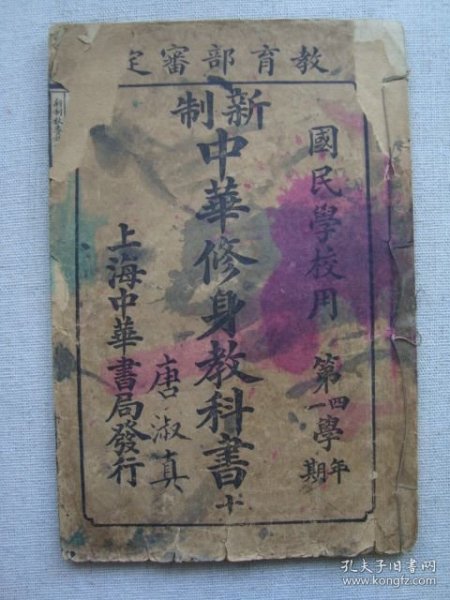 教育部審定
國民學校用
第四學年
第一學期
新制
中華修身教科書
十
唐淑真
上海中華書局發行
孔夫子旧书网
www.kongfz.com